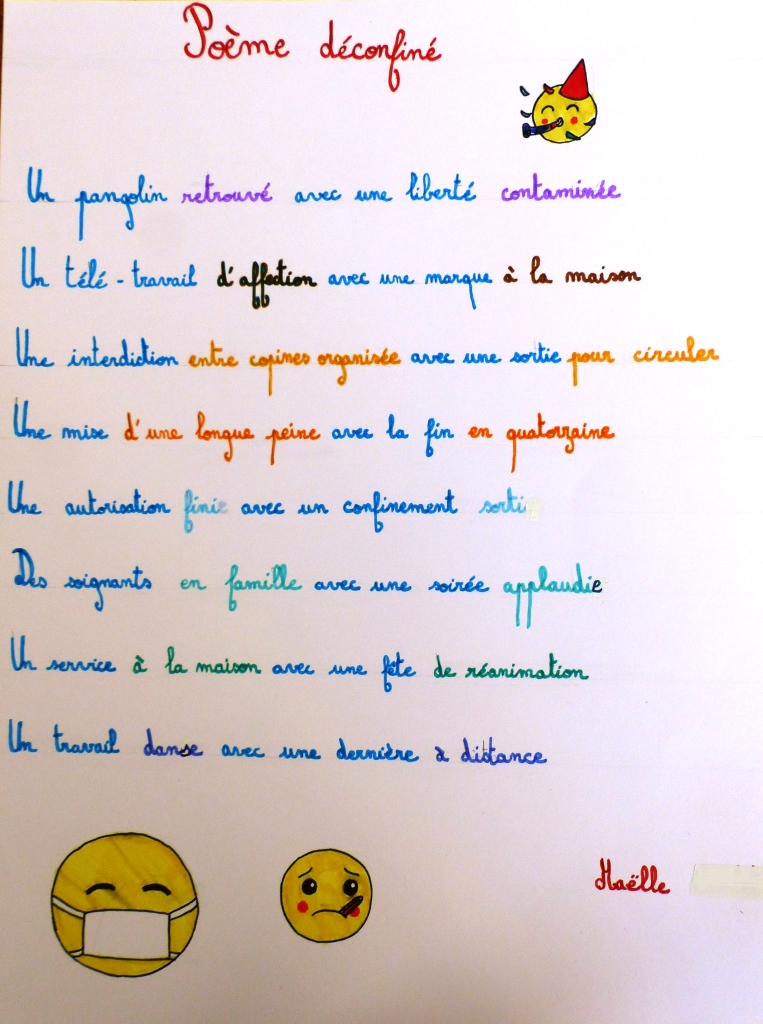 Poème déconfiné
Un pangolin retrouvé avec une liberté contaminée
Un télé-travail d'affection avec une marque à la maison
Une interdiction entre copines organisée avec une sortie pour circuler
Une mise d'une longue peine avec la fin en quatorzaine
Une autorisation finie avec un confinement sortie
Des soignants en famille avec une soirée applaudie
Un service à la maison avec une fête de réanimation
Un travail danse avec une dernière à distance
Maëlle